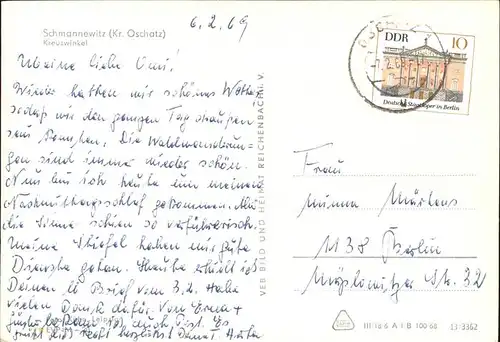 6. 2. 69
Schmannewitz (Kr. Oschatz)
Kreuzwinkel
Meine liebe Omi!
Wieder hatten wir schönes Wetter
sodaß wir den ganzen Tag draußen
sein konnten. Die Waldwanderun-
gen sind immer wieder schön.
Nun bin ich heute um meinen
Nachmittagsschlaf gekommen. Aber
die Sonne schien so verführerisch.
Meine Stiefel haben mir gute
Dienste getan. Heute erhielt ich
Deinen Brief vom 3.2. Habe
vielen Dank dafür. Von Erna
bekam ich auch Post. Es
grüßt Dich herzlichst Deine
VEB BILD UND HEIMAT REICHENBACH I. V.
DDR 10
Deutsche Staatsoper in Berlin
Frau
Minna Märtens
1138 Berlin
Myslowitzer Str. 32
III 18 6 A 1 B 100-68 13/3362